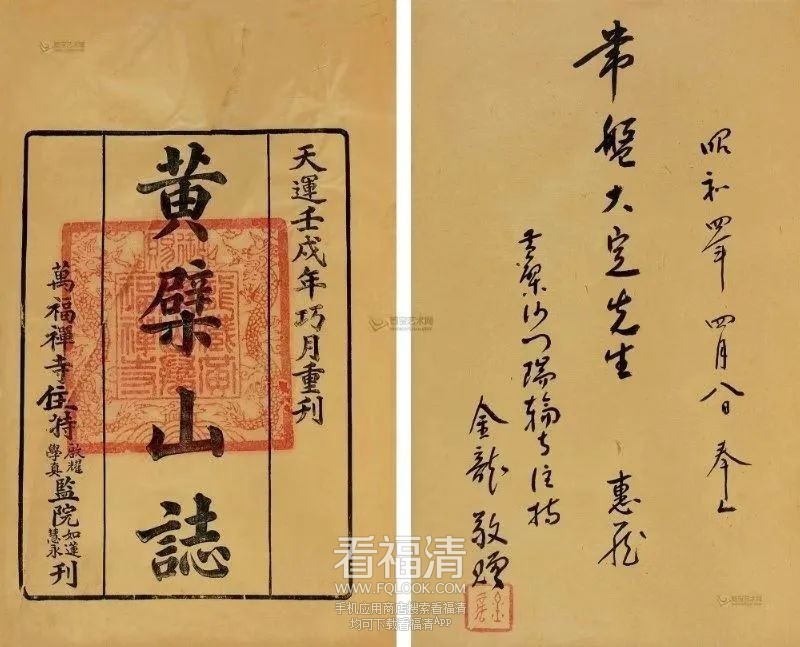 天運壬戌年巧月重刊
黄檗山誌
萬福禪寺住持啟耀學真監院如蓮慧永刊
昭和四年四月八日奉上
常盤大定先生 惠存
黄檗沙門瑞轮寺住持
金龍敬贈
看福清
WWW.FQLOOK.COM
手机应用商店搜索看福清
均可下载看福清APP